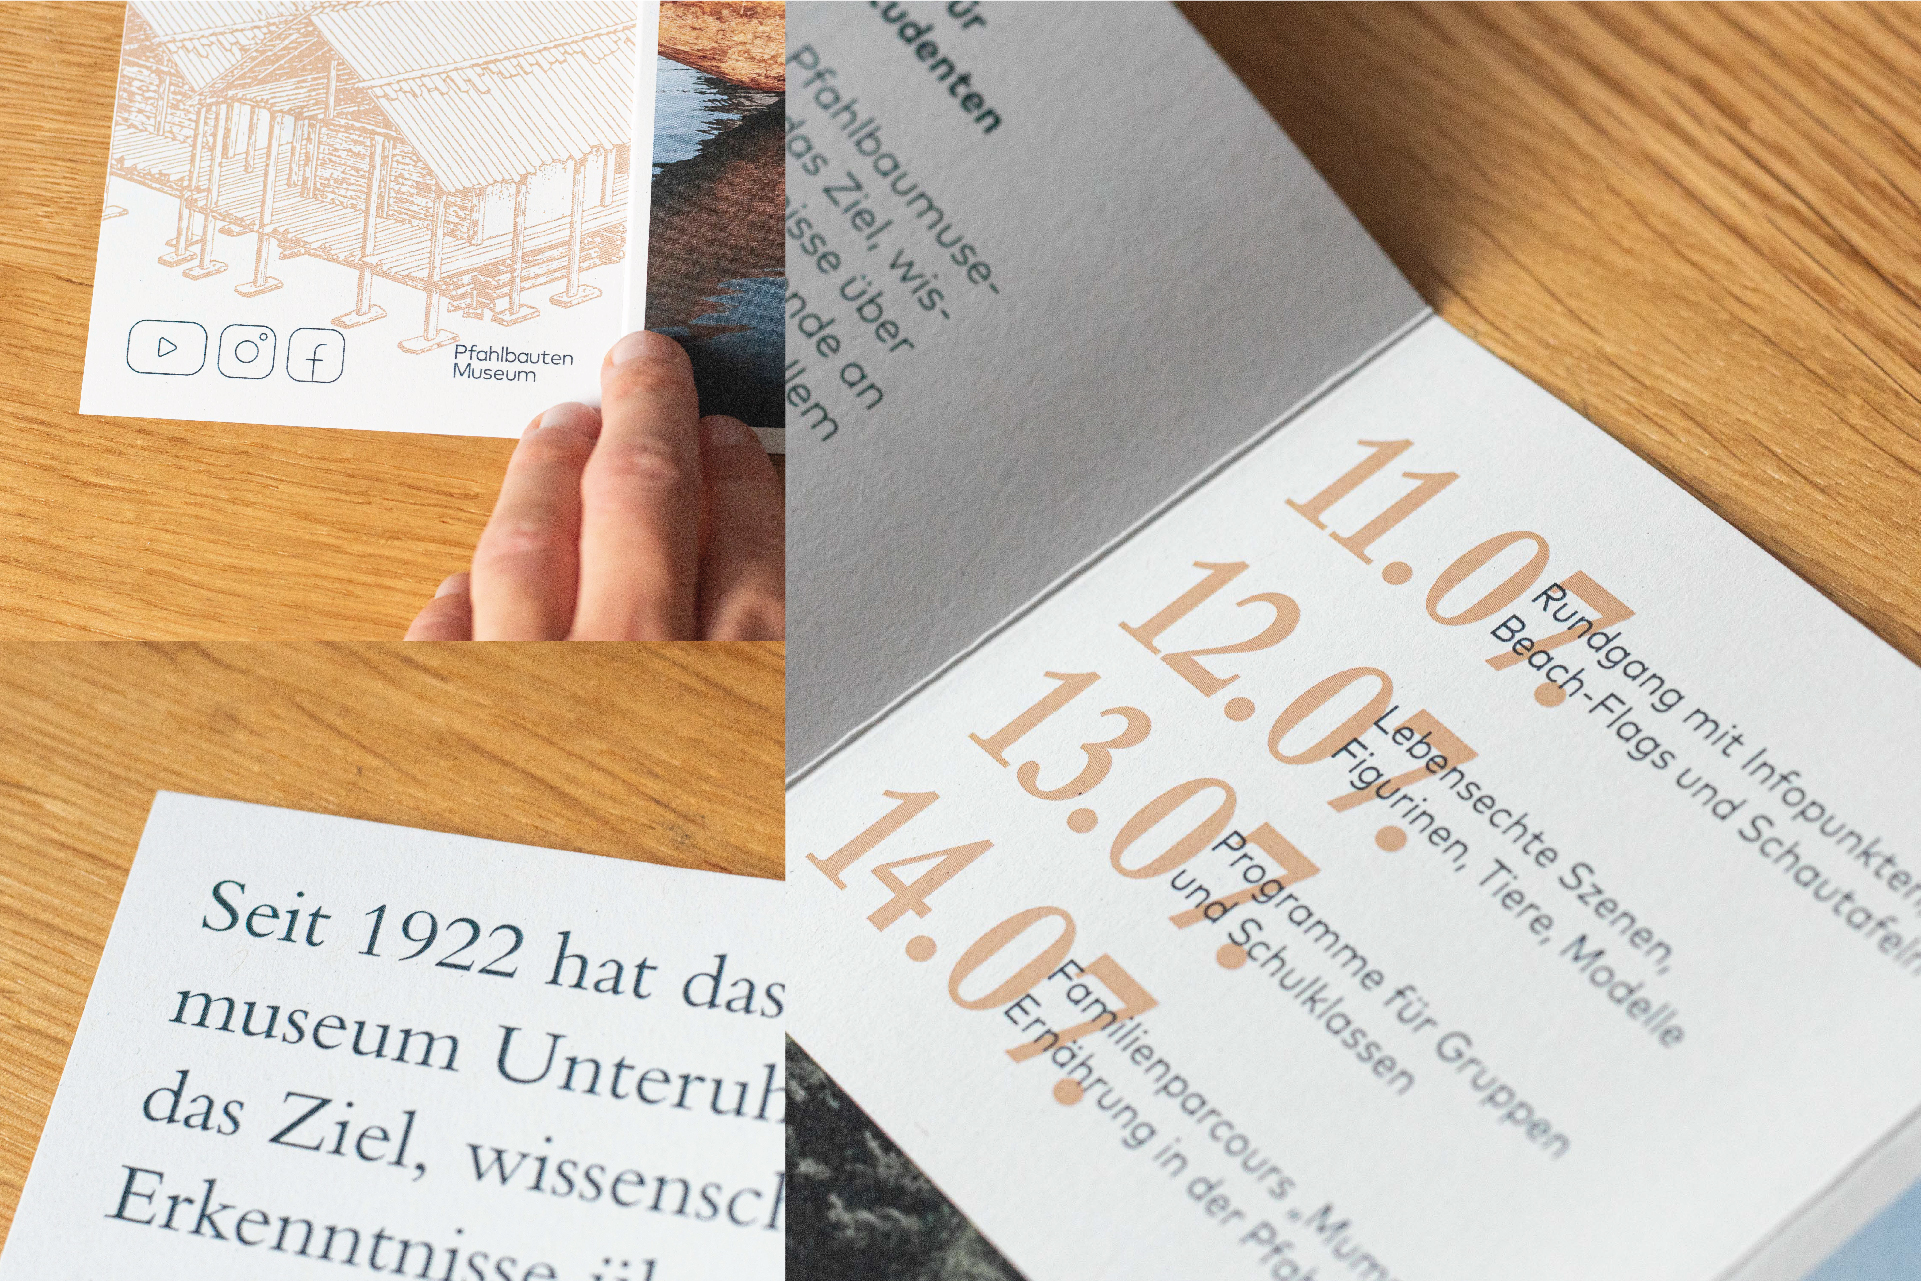 Pfahlbauten
Museum
Seit 1922 hat das
museum
das Ziel,
Erkenntnisse
Pfahlbaumuse-
das Ziel, wis-
über
an
11.07.
Rundgang mit Infopunkten,
Beach-Flags und Schautafeln
12.07.
Lebensechte Szenen,
Figurinen, Tiere, Modelle
13.07.
Programme für Gruppen
und Schulklassen
14.07.
Familienparcours „Mum
Ernährung in der Pfah